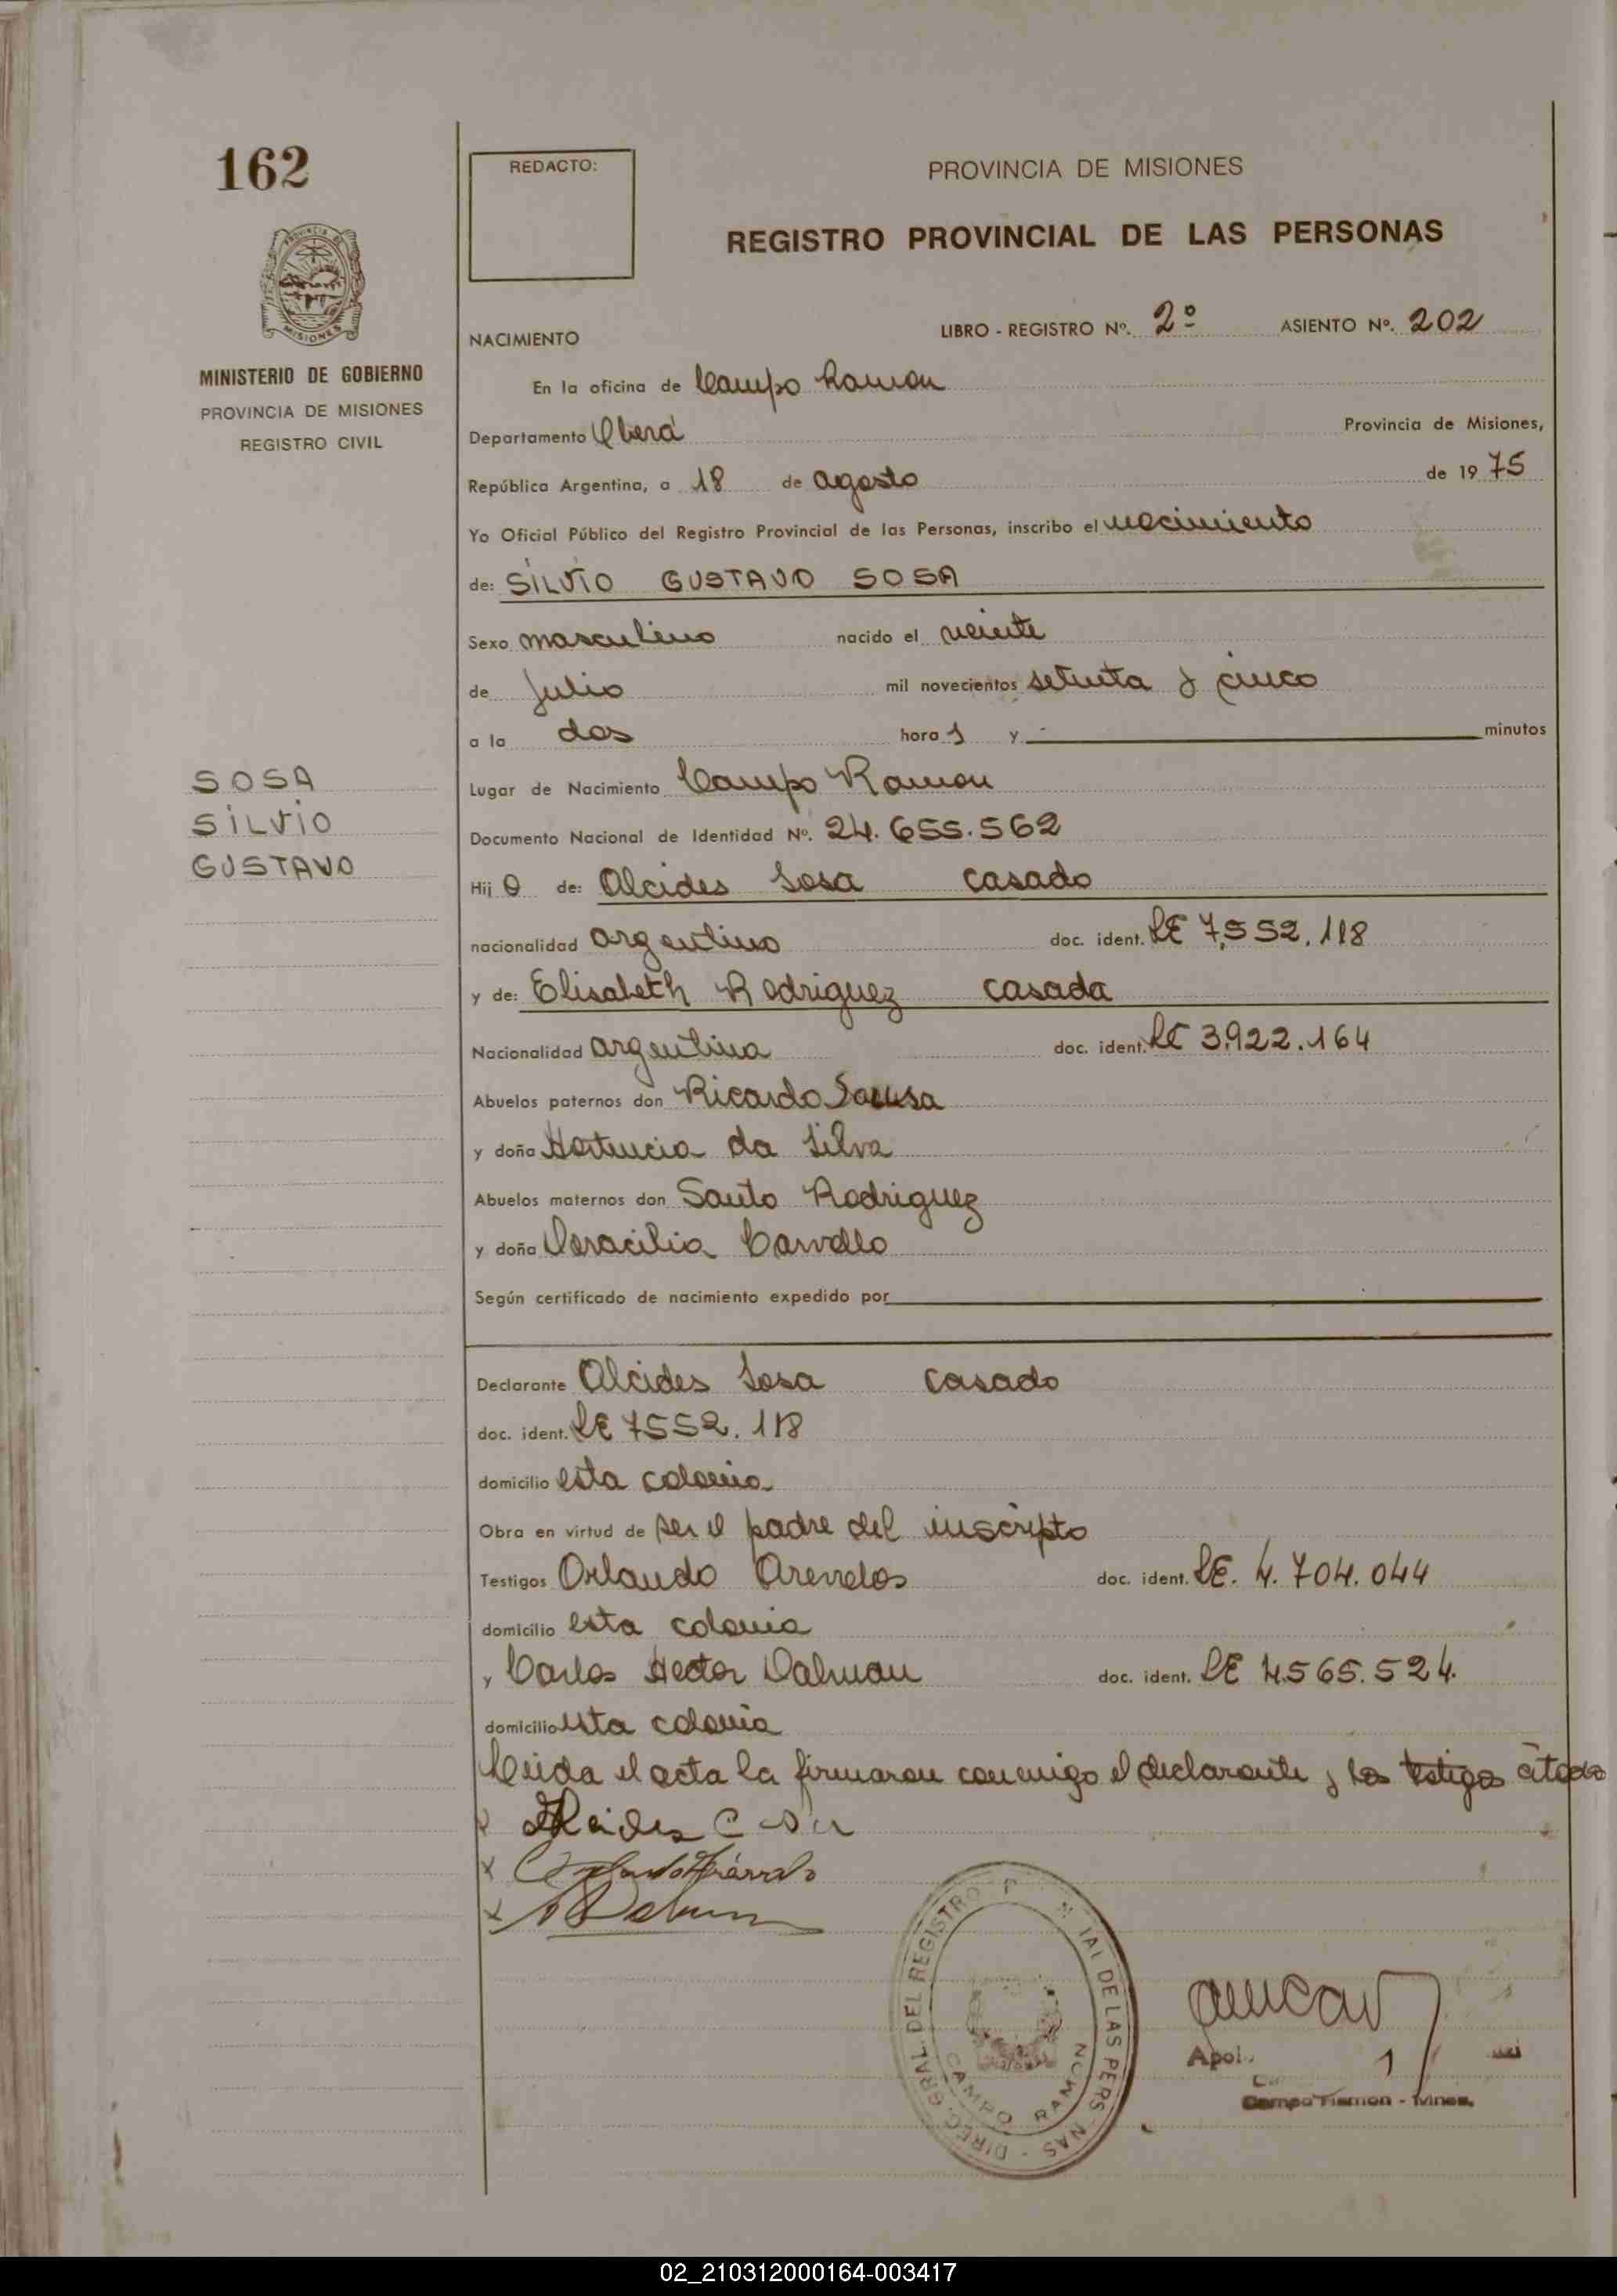 162
REDACTO:
PROVINCIA DE MISIONES
REGISTRO PROVINCIAL DE LAS PERSONAS
PROVINCIA DE
MISIONES
MINISTERIO DE GOBIERNO
PROVINCIA DE MISIONES
REGISTRO CIVIL
NACIMIENTO LIBRO - REGISTRO Nº. 2º ASIENTO Nº. 202
En la oficina de Campo Ramon
Departamento Oberá Provincia de Misiones,
República Argentina, a 18 de agosto de 19 75
Yo Oficial Público del Registro Provincial de las Personas, inscribo el nacimiento
de: SILVIO GUSTAVO SOSA
Sexo masculino nacido el veinte
de Julio mil novecientos setenta y cinco
a la dos hora s y minutos
SOSA
SILVIO
GUSTAVO
Lugar de Nacimiento Campo Ramon
Documento Nacional de Identidad Nº. 24.655.562
Hij o de: Alcides Sosa casado
nacionalidad argentino doc. ident. LE 7.552.118
y de: Elisabeth Rodriguez casada
Nacionalidad argentina doc. ident. LC 3.922.164
Abuelos paternos don Ricardo
y doña Hortencia da Silva
Abuelos maternos don Santo Rodriguez
y doña
Según certificado de nacimiento expedido por
Declarante Alcides Sosa casado
doc. ident. LE 7552.118
domicilio esta colonia
Obra en virtud de ser el padre del inscripto
Testigos Orlando doc. ident. LE. 4.704.044
domicilio esta colonia
y Carlos Hector Dalman doc. ident. LE 4.565.524.
domicilio esta colonia
Leida el acta la firmaron conmigo el declarante y los testigos citados
DIREC. GRAL. DEL REGISTRO P N IAL DE LAS PERS NAS
CAMPO RAMON
Apol
Campo Ramon - Mnes.
02_210312000164-003417